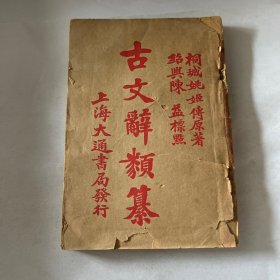 桐城姚姬傳原著
紹興陳益標點
古文辭類纂
上海大通書局發行